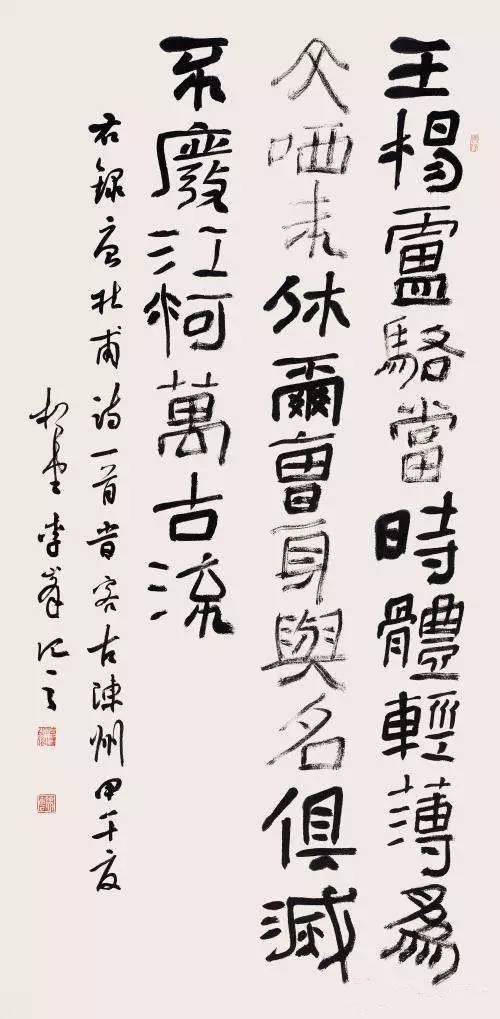 王楊盧駱當時體輕薄為
文哂未休爾曹身與名俱滅
不廢江河萬古流
右錄唐杜甫詩一首昔客古陳州甲午夏
李峯记之